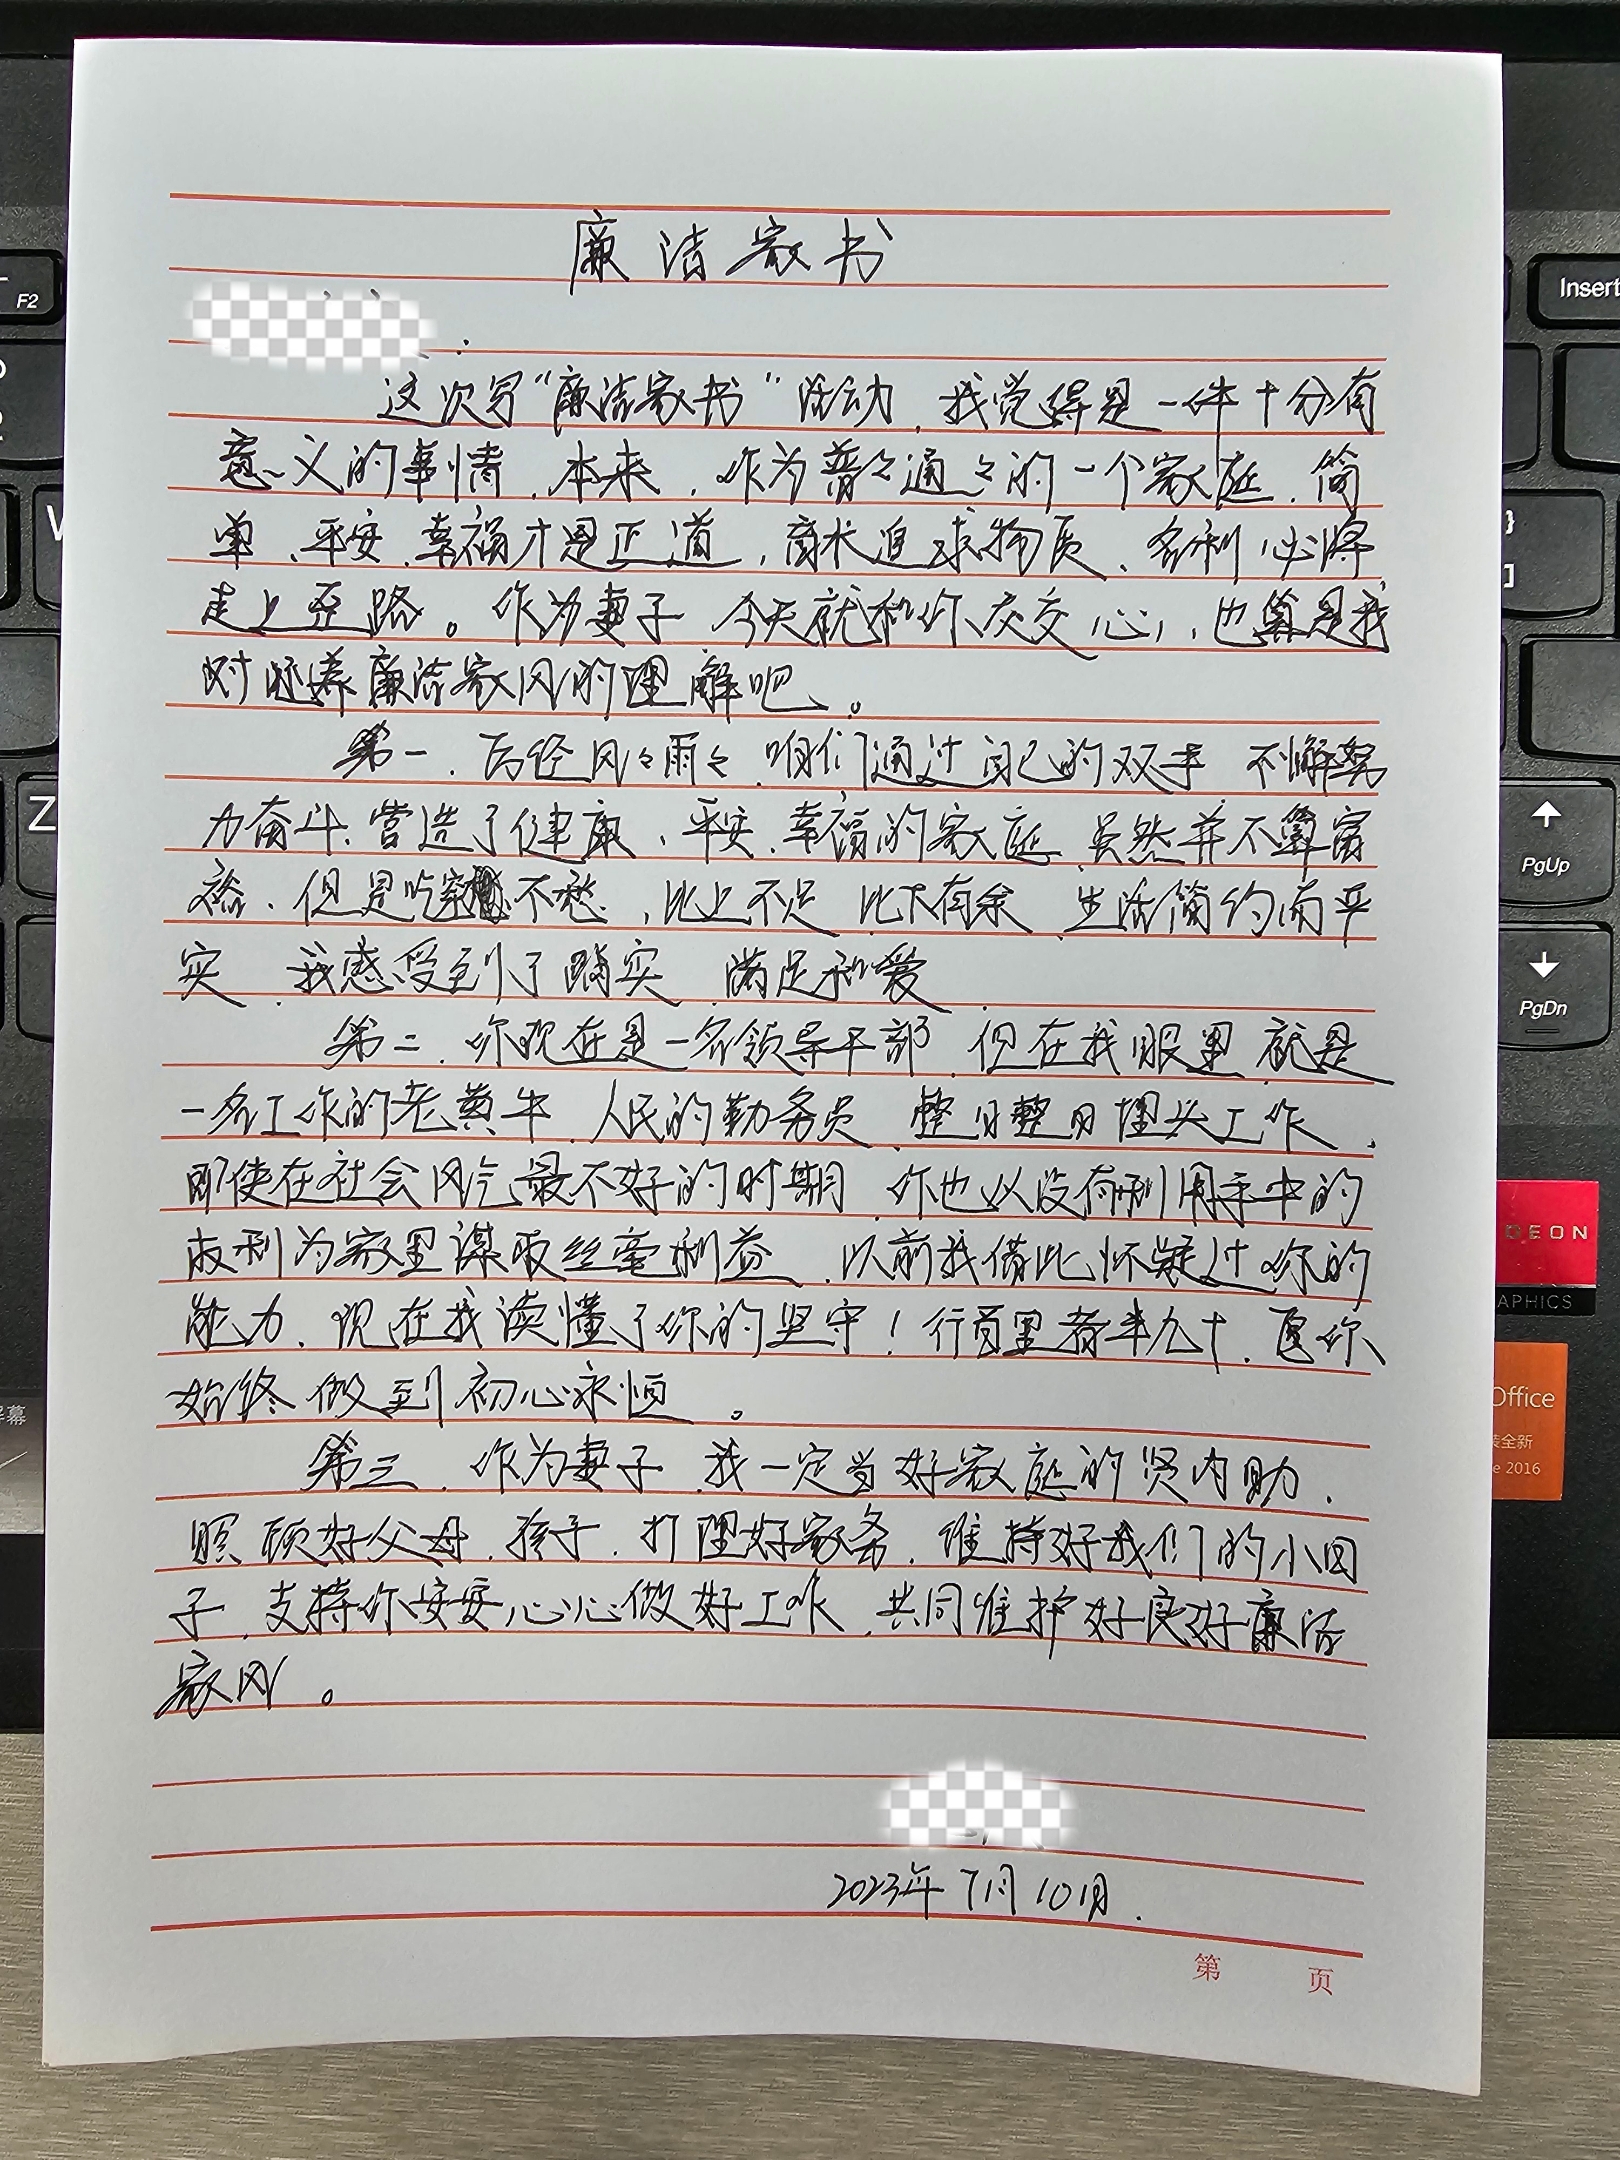 廉洁家书
：
这次写“廉洁家书”活动，我觉得是一件十分有
意义的事情，本来，作为普々通々的一个家庭，简
单、平安、幸福才是正道，商米追求物质、名利，必将
走上歪路。作为妻子，今天就和你交交心，也算是我
对培养廉洁家风的理解吧。
第一、历经风々雨々，咱们通过自己的双手，不懈努
力奋斗，营造了健康、平安、幸福的家庭，虽然并不算富
裕，但是吃穿不愁，比上不足，比下有余，生活简约而平
实，我感受到了踏实、满足和爱
第二、你现在是一名领导干部，但在我眼里就是
一名工作的老黄牛，人民的勤务员，整日整日埋头工作，
即使在社会风气最不好的时期，你也从没有利用手中的
权利为家里谋取丝毫利益，以前我借此怀疑过你的
能力，现在我读懂了你的坚守！行百里者半九十，愿你
始终做到初心永恒。
第三、作为妻子，我一定当好家庭的贤内助，
照顾好父母、孩子，打理好家务，维持好我们的小日
子，支持你安安心心做好工作，共同维护好良好廉洁
家风。
2023年7月10日.
第 页
F2
Insert
W
Z
PgUp
PgDn
DEON
APHICS
Office
装全新
e 2016
屏幕